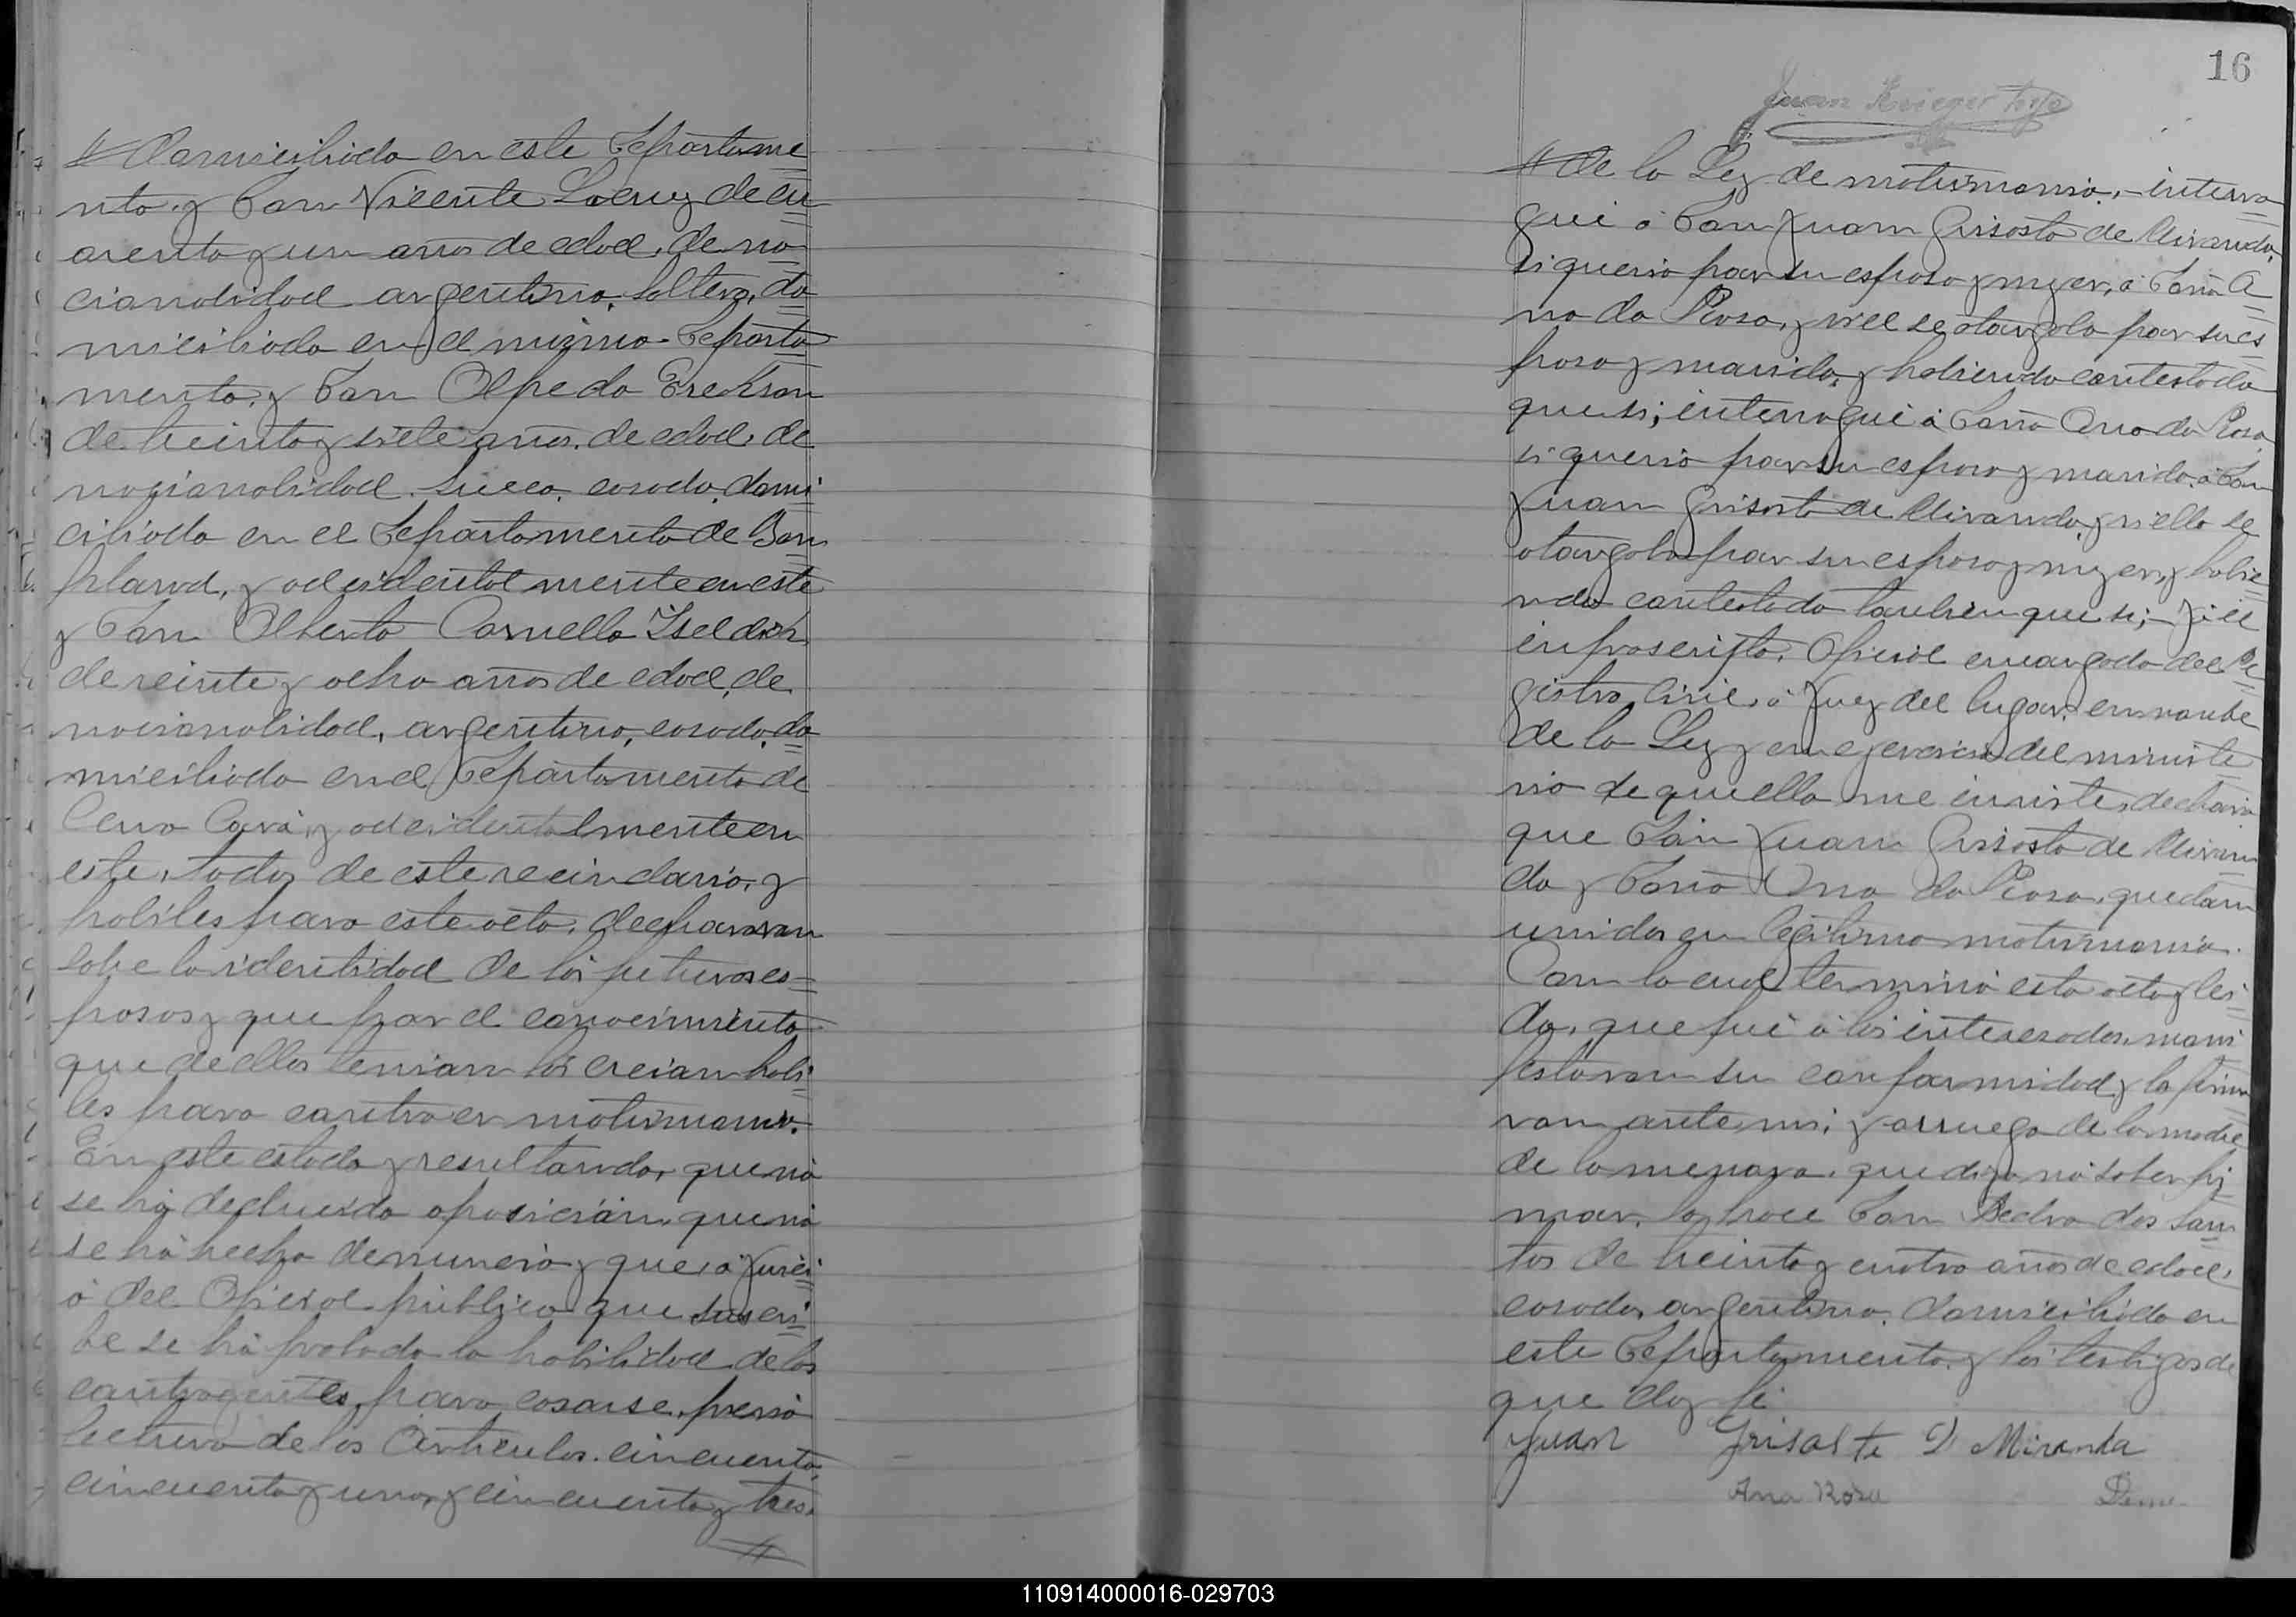 // domiciliado en este Departame
nto. y Don Vicente Loeuz de cu=
arenta y un años de edad, de na=
cionalidad argentino, soltero, do=
miciliado en el mismo Departa=
mento, y Don Alfredo Erekson
de treinta y siete años de edad, de
nacionalidad sueco, casado, domi=
ciliado en el Departamento de Bon=
pland, y accidentalmente en este
y Don Alberto Cornello Iseldich
de veinte y ocho años de edad, de
nacionalidad, argentino, casado, do=
miciliado en el Departamento de
Cerro Corá, y accidentalmente en
este, todos de este vecindario, y
habiles para este acto, declararon
sobre la identidad de los futuros es=
posos y que por el conocimiento
que de ellos tenian los creian habi=
les para contraer matrimonio.
En este estado y resultando, que nó
se há deducido oposición, que nó
se há hecho denuncia y que, á juici=
o del Oficial público que suscri=
be se há probado la habilidad de los
contragentes para casarse, previa
lectura de los Articulos cincuenta,
cincuenta y uno, y cincuenta y tres.
//
16
Juan Krieger hijo
// de la Ley de matrimonio, interro=
gué á Don Juan Grisosto de Miranda,
si queria por su esposo y mujer, á Doña A=
na da Rosa, y si él se otorgaba por su es=
poso y marido, y habiendo contestado
que si; interrogué á Doña Ana da Rosa
si queria por su esposo y marido á Don
Juan Grisosto de Miranda, y si ella se
otorgaba por su esposo y mujer, y habie=
ndo contestado tambien que si; Yo el
infrascripto, Oficial encargado del Re=
gistro Civil, ó Juez del lugar, en nombre
de la Ley y en ejercicio del ministe=
rio de que ella me inviste, declaro
que Don Juan Grisosto de Miran=
da y Doña Ana da Rosa, quedan
unidos en legitimo matrimonio.
Con lo cual terminó esta acta y lei=
da, que fué á los interesados, mani=
festaron su conformidad y la firma=
ron ante mi, y a ruego de la madre
de la menor, que dijo nó saber fir=
mar, lo hace Don Pedro dos San=
tos de treinta y cuatro años de edad,
casado, argentino, domiciliado en
este Departamento, y los testigos de
que doy fé
Juan Grisoste D Miranda
Ana Rosa